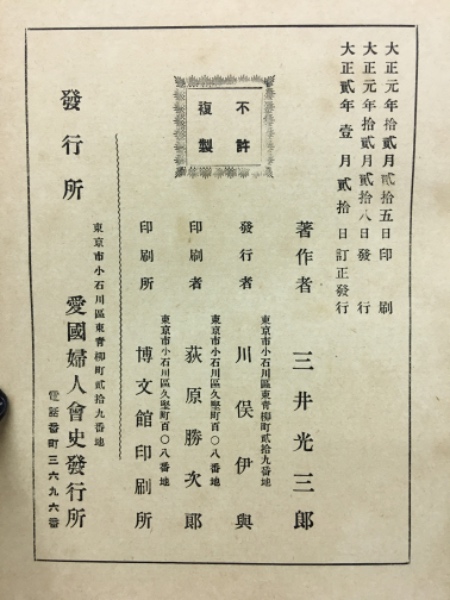 大正元年拾貳月貳拾五日印刷
大正元年拾貳月貳拾八日發行
大正貳年壹月貳拾日訂正發行
不許
複製
著作者 三井光三郎
東京市小石川區東青柳町貳拾九番地
發行者 川俣伊與
東京市小石川區久堅町百〇八番地
印刷者 荻原勝次郎
東京市小石川區久堅町百〇八番地
印刷所 博文館印刷所
東京市小石川區東青柳町貳拾九番地
發行所 愛國婦人會史發行所
電話番町三六九六番